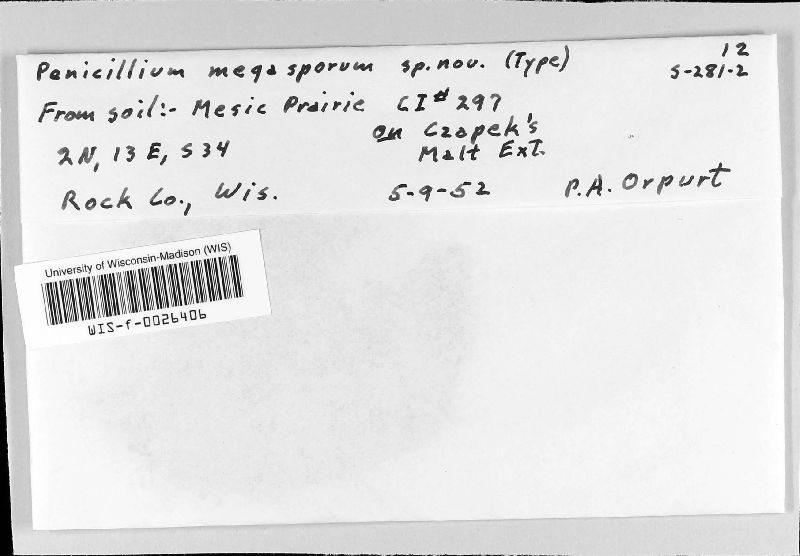 12
Penicillium megasporum sp. nov. (Type) S-281-2
From soil:- Mesic Prairie CI# 297
on Czapek's
2N, 13E, S34 Malt Ext.
Rock Co., Wis. 5-9-52 P.A. Orpurt
University of Wisconsin-Madison (WIS)
WIS-f-0026406